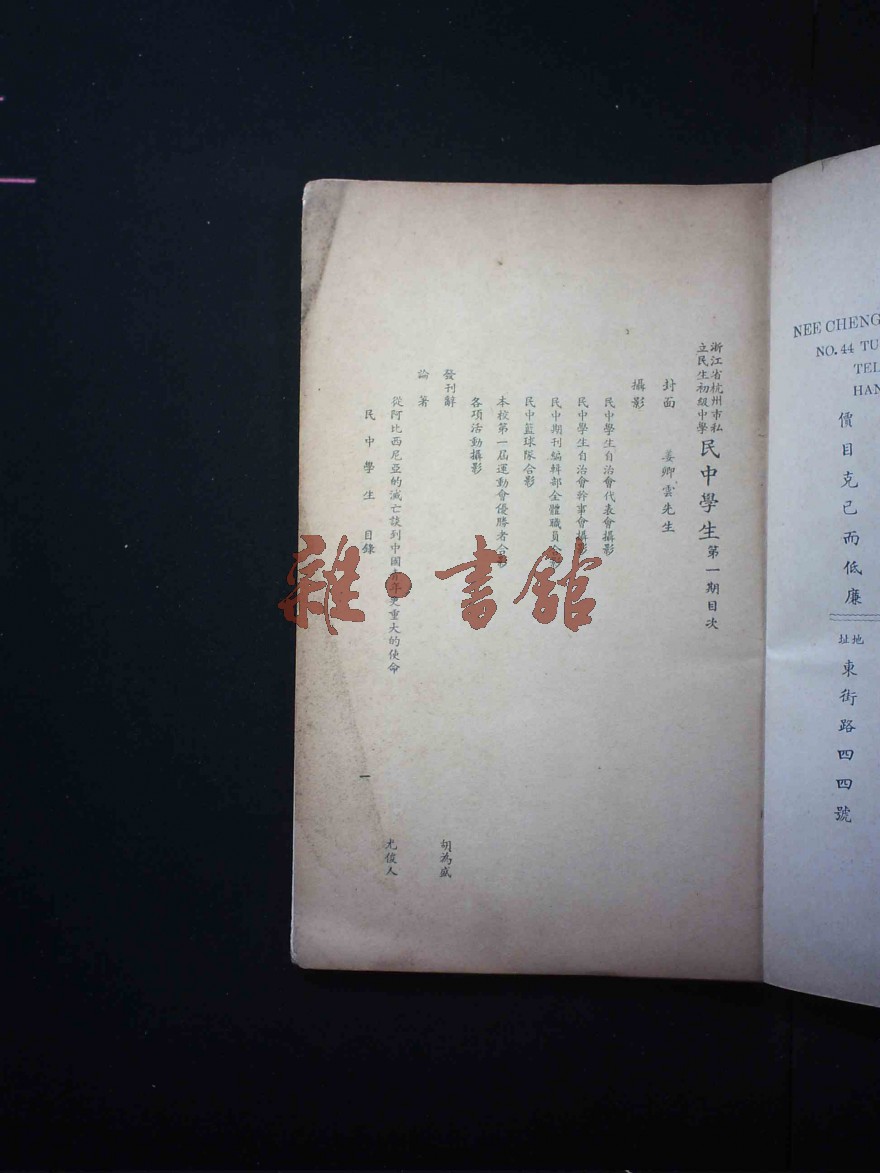 浙江省杭州市私
立民生初級中學
民中學生第一期目次
封面 姜卿雲先生
攝影
民中學生自治會代表會攝影
民中學生自治會幹事會攝影
民中期刊編輯部全體職員合影
民中籃球隊合影
本校第一屆運動會優勝者合影
各項活動攝影
發刊辭 胡為盛
論著
從阿比西尼亞的滅亡談到中國青年更重大的使命 尤俊人
民中學生 目錄 一
雜·書館
NEE CHENG
NO. 44 TU
TEL
HAN
價目克已而低廉
地扯
東街路四四號